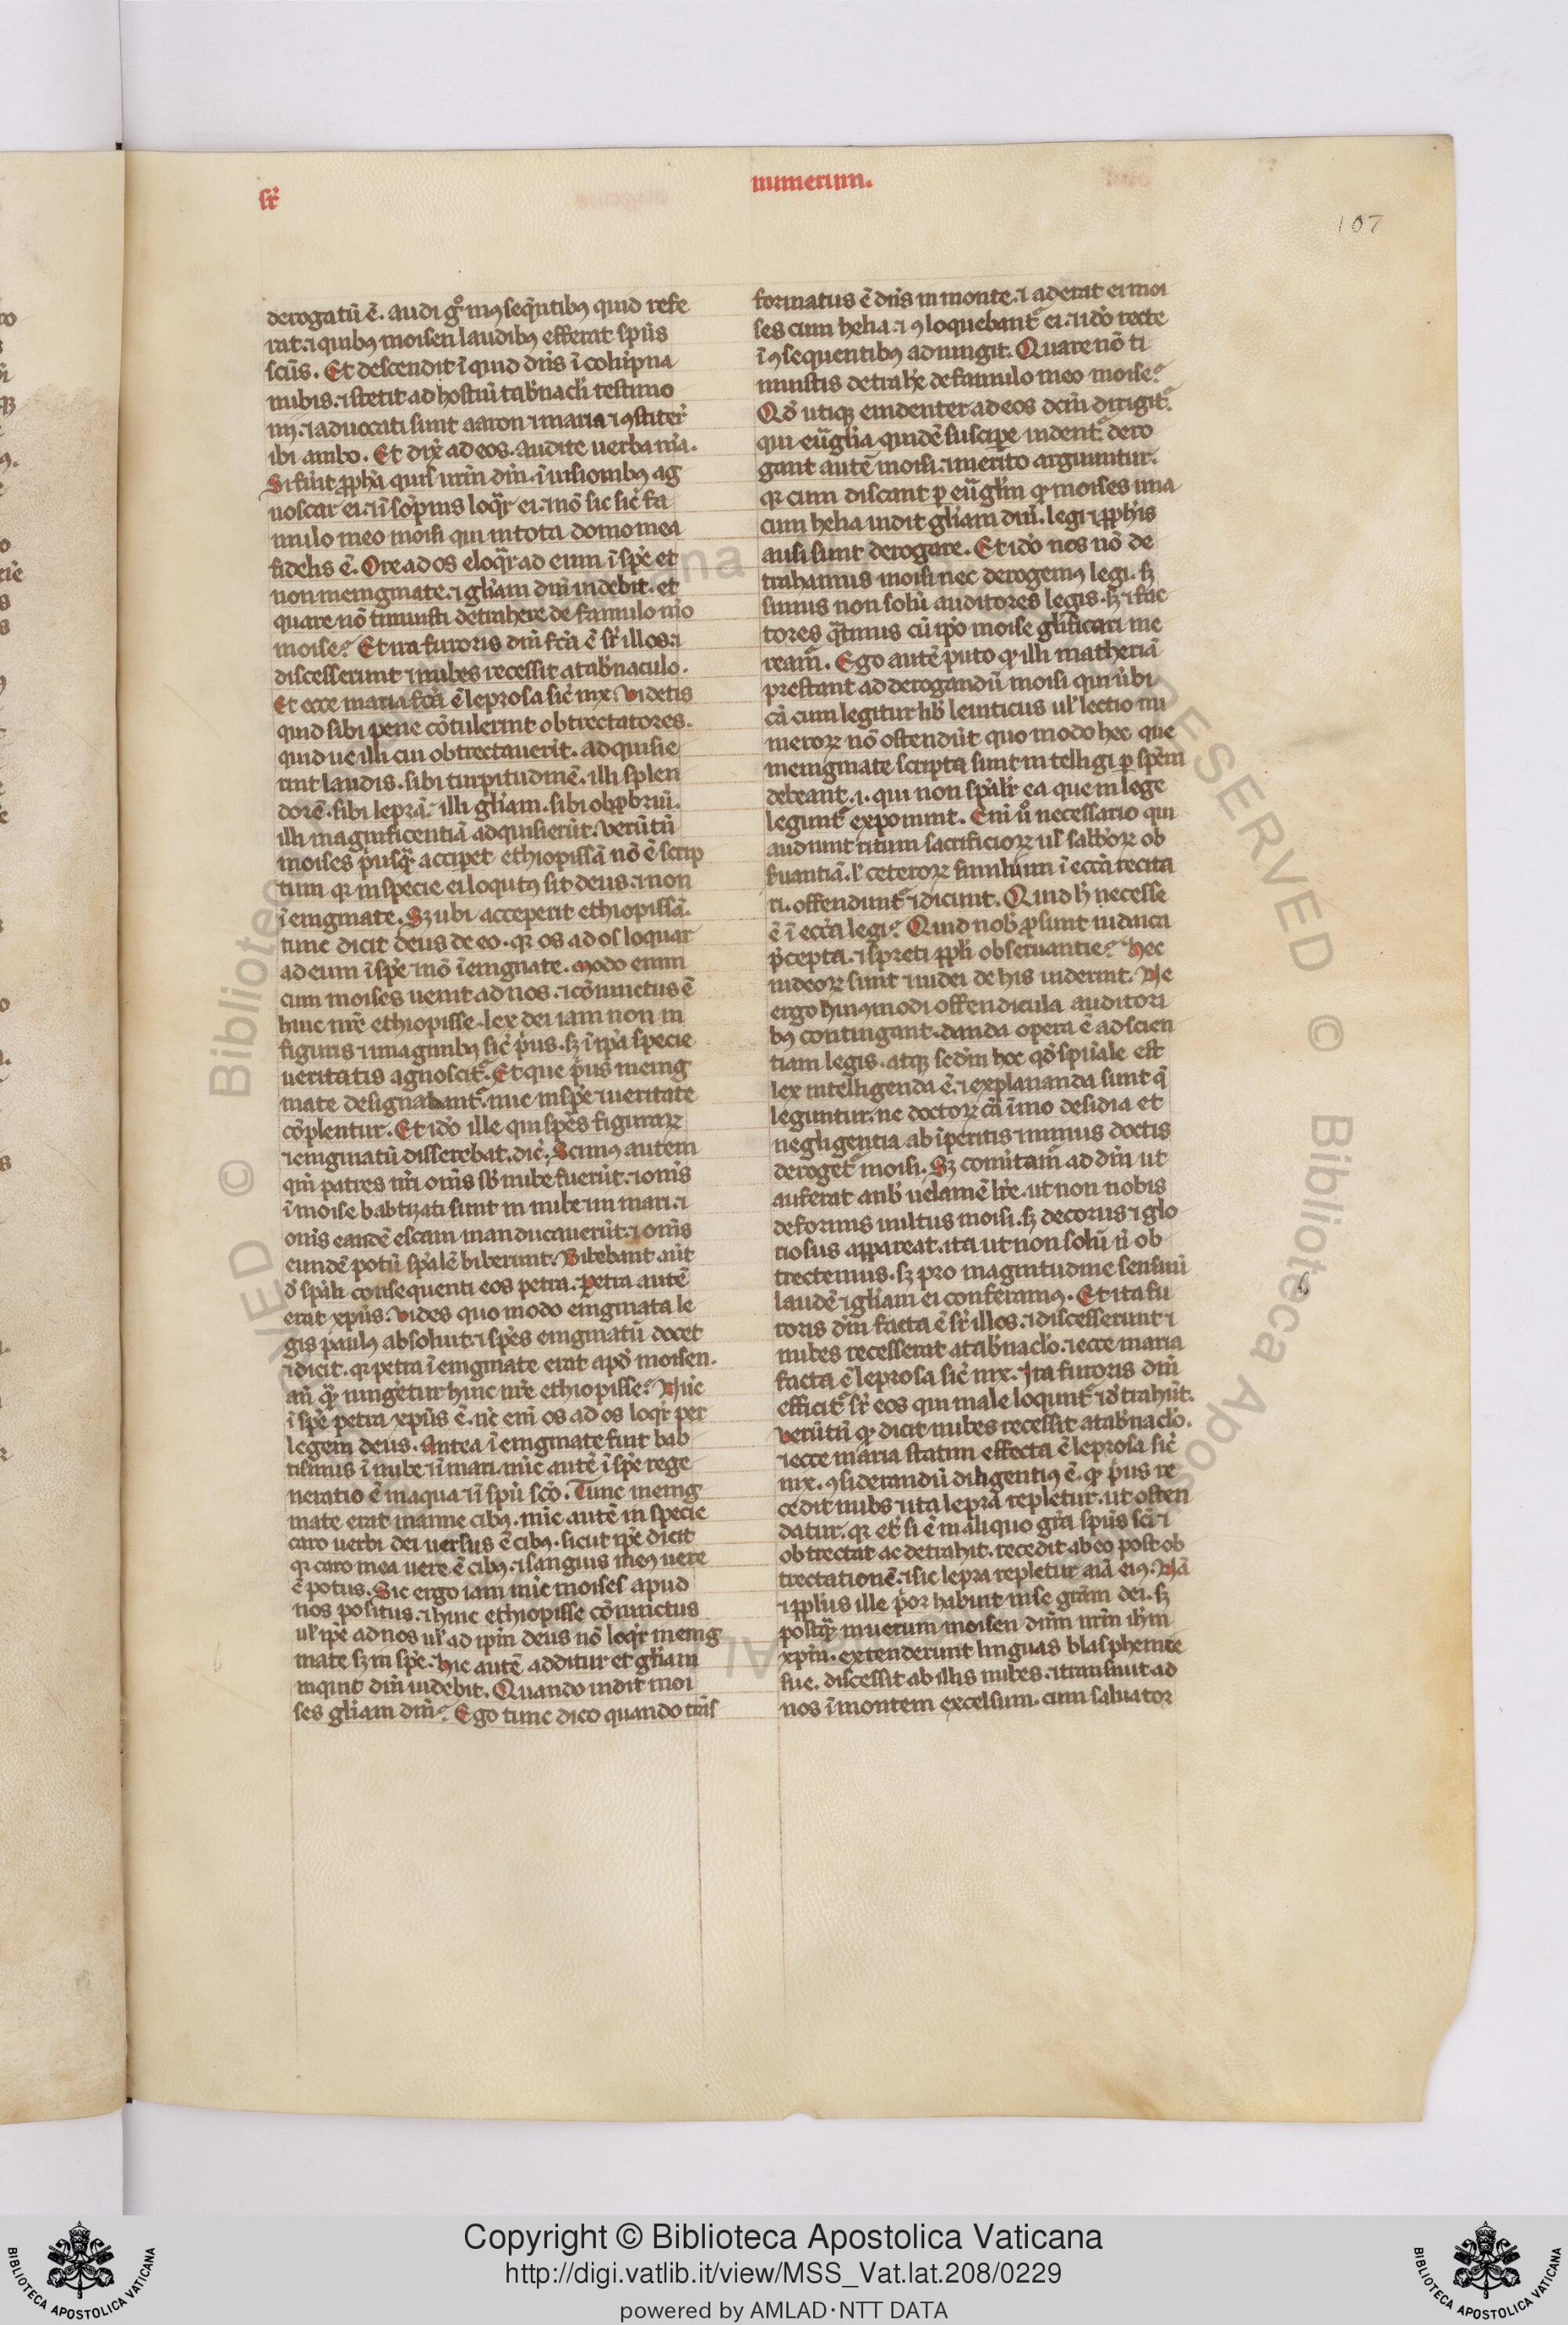 sr̃
numerum.
107
derogatũ ẽ. Audi gͦ ꝯseq̃ntibꝰ quid refe
rat. ⁊ quibꝰ moisen laudibꝰ efferat sp̃us
sc̃us. Et descendit ĩquid dñs ĩ colũpna
nubis. ⁊ stetit ad hostiũ tab̃nacli testimo
nij. ⁊ aduocati sunt aaron ⁊ maria ⁊ ꝯstiter̃
ibi ambo. Et dix̃ ad eos. Audite uerba m̃a.
Si fũit ꝓph̃a quis ur̃m dñi. ĩ uisionibꝰ ag
noscar ei. ⁊ ĩ sõpnis loq̃r ei. ⁊ nõ sic sic̃ fa
mulo meo moisi qui in tota domo mea
fidelis ẽ. Ore ad os eloq̃r ad eum ĩ sp̃e et
non in enigmate. ⁊ gl̃iam dñi uidebit. et
quare nõ timuisti detrahere de famulo m̃o
moise? Et ira furoris dñi fc̃a ẽ sr̃ illos. ⁊
discesserunt ⁊ nubes recessit a tab̃naculo.
Et ecce maria fc̃a ẽ leprosa sic̃ nix. Videtis
quid sibi pene cõtulerint obtrectatores.
quid ue illi cui obtrectauerĩt. adquisie
rint laudis. sibi turpitudinẽ. illi splen
dorẽ. sibi leprã. illi gl̃iam. sibi obꝓbriũ.
illi magnificentiã adquisierũt. Verũtñ
moises p̃usq̃ acciperet ethiopissã nõ ẽ scrip
tum qꝛ in specie ei loqutꝰ sit deus. ⁊ non
ĩ enigmate. Sꝫ ubi acceperit ethiopissã.
tunc dicit deus de eo. qꝛ os ad os loquar
ad eum ĩ sp̃e ⁊ nõ ĩ enigmate. Modo enim
cum moises uenit ad nos. ⁊ cõiunctus ẽ
huic nr̃e ethiopisse. lex dei iam non in
figuris ⁊ imaginibꝰ sic̃ p̃us. sꝫ ĩ ip̃a specie
ueritatis agnoscit̃. Et que p̃us in enig
mate designabant̃. nuc in sp̃e ⁊ ueritate
cõplentur. Et ido ille qui sp̃es figuraꝝ
⁊ enigmatũ disserebat. dic̃. Scimꝰ autem
qm̃ patres nr̃i om̃s sb̃ nube fuerũt. ⁊ om̃s
ĩ moise babtizati sunt in nube ⁊ in mari. ⁊
om̃s eandẽ escam manducauerũt. ⁊ om̃s
eundẽ potũ sp̃alẽ biberunt. Bibebant aũt
d̃ sp̃ali consequenti eos petra. Petra autẽ
erat xp̃us. Vides quo modo enigmata le
gis paulꝰ absoluit. ⁊ sp̃es enigmatũ docet
⁊ dicit. qꝛ petra ĩ enigmate erat apd̃ moisen.
añ q̃ iungeretur huic nr̃e ethiopisse. Nũc
ĩ sp̃e petra xp̃us ẽ. nc̃ eni os ad os loq̃r per
legem deus. Antea ĩ enigmate fuit bab
tismus ĩ nube ⁊ ĩ mari. nũc autẽ ĩ sp̃e rege
neratio ẽ in aqua ⁊ ĩ spũ sc̃o. Tunc in enig
mate erat manne cibꝰ. nũc autẽ in specie
caro uerbi dei uersus ẽ cibꝰ. sicut ip̃e dicit
qꝛ caro mea uere ẽ cibꝰ. ⁊ sanguis meꝰ uere
ẽ potus. Sic ergo iam nũc moises apud
nos positus. ⁊ huic ethiopisse cõiunctus
ul̃ ip̃e ad nos ul̃ ad ip̃m deus nõ loq̃r in enig
mate sꝫ in sp̃e. Hic autẽ additur et gl̃iam
inquit dñi uidebit. Quando uidit moi
ses gl̃iam dñi? Ego tunc dico quando trãs
formatus ẽ dñs in monte. ⁊ aderat ei moi
ses cum helia. ⁊ ꝯloquebant̃ ei. ⁊ ido recte
ĩ ꝯsequentibꝰ adiungit. Quare nõ ti
muistis detrahe de famulo meo moise?
Qd̃ utiqꝫ euidenter ad eos dc̃m dirigit̃.
qui eũglia quidẽ suscipe uident̃. dero
gant autẽ moisi. ⁊ merito arguuntur.
qꝛ cum discant p eũglim qꝛ moises una
cum helia uidit gl̃iam dñi. legi ⁊ ꝓphis
ausi sunt derogare. Et ido nos nõ de
trahamus moisi nec derogemꝰ legi. sꝫ
simus non solũ auditores legis. sꝫ ⁊ fac
tores q̃tinus cũ ip̃o moise gl̃ificari me
ream̃. Ego autẽ puto qꝛ illi matheriã
prestant ad derogandũ moisi qui ũbi
cã cum legitur lib̃ leuiticus ul̃ lectio nu
meroꝝ nõ ostendũt quo modo hec que
in enigmate scripta sunt intelligi p sp̃em
debeant .i. qui non sp̃alit̃ ea que in lege
legunt̃ exponunt. Eni ũ necessario qui
audiunt ritum sacrificioꝝ ul̃ sabb̃oꝝ ob
suantiã. l̃ ceteroꝝ similium ĩ ecc̃a recita
ri. offendunt̃ ⁊ dicunt. Quid h̃ necesse
ẽ ĩ ecc̃a legi? Quid nob̃ ꝓsunt iudaica
p̃cepta. ⁊ spreti ppli obseruantie? Hec
iudeoꝝ sunt ⁊ iudei de his uiderint. Ne
ergo huiꝰmodi offendicula auditori
bꝰ contingant. danda opera ẽ ad scien
tiam legis. atqꝫ sedm hoc qd̃ spũale est
lex intelligenda ẽ. ⁊ explananda sunt q̃
leguntur. ne doctoꝝ cã ĩmo desidia et
negligentia ab ĩperitis ⁊ minus doctis
deroget̃ moisi. Sꝫ conũtam̃ ad dñm ut
auferat anb̃ uelamẽ lr̃e. ut non nobis
deformis uultus moisi. sꝫ decorus ⁊ glo
riosus appareat. ita ut non solũ ñ ob
trectemus. sꝫ pro magnitudine sensuũ
laudẽ ⁊ gl̃iam ei conferamꝰ. Et ira fu
roris dñi facta ẽ sr̃ illos. ⁊ discesserunt ⁊
nubes recesserat a tab̃naclo. ⁊ ecce maria
facta ẽ leprosa sic̃ nix. Ira furoris dñi
efficit̃ sr̃ eos qui male loqunt̃ ⁊ dtrahũt.
Verũtñ qꝛ dicit nubes recessit a tab̃naclo.
⁊ ecce maria statim effecta ẽ leprosa sic̃
nix. ꝯsiderandũ diligentiꝰ ẽ. qꝛ p̃us re
cedit nubs ⁊ ita lepra repletur. ut osten
datur. qꝛ et̃ si ẽ in aliquo gr̃a spũs sc̃i ⁊
obtrectat ac detrahit. recedit ab eo post ob
trectationẽ. ⁊ sic lepra repletur aĩa eiꝰ. Nã
⁊ pplus ille p̃or habuit in se gr̃am dei. sꝫ
postq̃ in uerum moisen dñm nr̃m ihm
xpm. extenderunt linguas blaspheme
sue. discessit ab illis nubes. ⁊ transiuit ad
nos ĩ montem excelsum. cum saluator
Copyright © Biblioteca Apostolica Vaticana
http://digi.vatlib.it/view/MSS_Vat.lat.208/0229
powered by AMLAD·NTT DATA